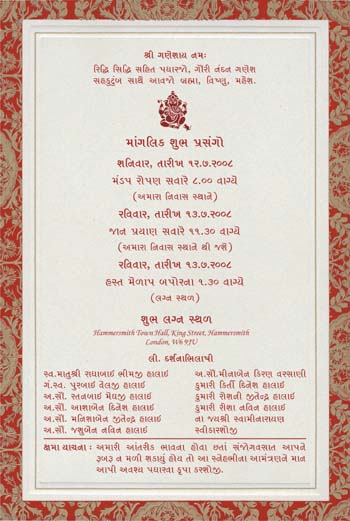 શ્રી ગણેશાય નમઃ
રિદ્ધિ સિદ્ધિ સહિત પધારજો, ગૌરી નંદન ગણેશ
સહકુટુંબ સાથે આવજો બ્રહ્મા, વિષ્ણુ, મહેશ.
માંગલિક શુભ પ્રસંગો
શનિવાર, તારીખ ૧૨.૭.૨૦૦૮
મંડપ રોપણ સવારે ૮.૦૦ વાગ્યે
(અમારા નિવાસ સ્થાને)
રવિવાર, તારીખ ૧૩.૭.૨૦૦૮
જાન પ્રયાણ સવારે ૧૧.૩૦ વાગ્યે
(અમારા નિવાસ સ્થાને થી જશે)
રવિવાર, તારીખ ૧૩.૭.૨૦૦૮
હસ્ત મેળાપ બપોરના ૧.૩૦ વાગ્યે
(લગ્ન સ્થળ)
શુભ લગ્ન સ્થળ
Hammersmith Town Hall, King Street, Hammersmith
London, W6 9JU
લી. દર્શનાભિલાષી
સ્વ.માતુશ્રી રાધાબાઈ ભીમજી હાલાઈ
ગં.સ્વ. પુરબાઈ વેલજી હાલાઈ
અ.સૌ. રતનબાઈ મેઘજી હાલાઈ
અ.સૌ. આશાબેન દિનેશ હાલાઈ
અ.સૌ. મનિશાબેન જીતેન્દ્ર હાલાઈ
અ.સૌ. જશુબેન નવિન હાલાઈ
અ.સૌ.મીનાબેન કિરણ વરસાણી
કુમારી કિર્તી દિનેશ હાલાઈ
કુમારી રોશની જીતેન્દ્ર હાલાઈ
કુમારી રીશા નવિન હાલાઈ
ના જયશ્રી સ્વામીનારાયણ
સ્વીકારશોજી
ક્ષમા યાચના : અમારી આંતરીક ભાવના હોવા છતાં સંજોગવસાત આપને
રૂબરૂ ન મળી શકાયું હોય તો આ સ્નેહભીના આમંત્રણને માન
આપી અવશ્ય પધારવા કૃપા કરશોજી.